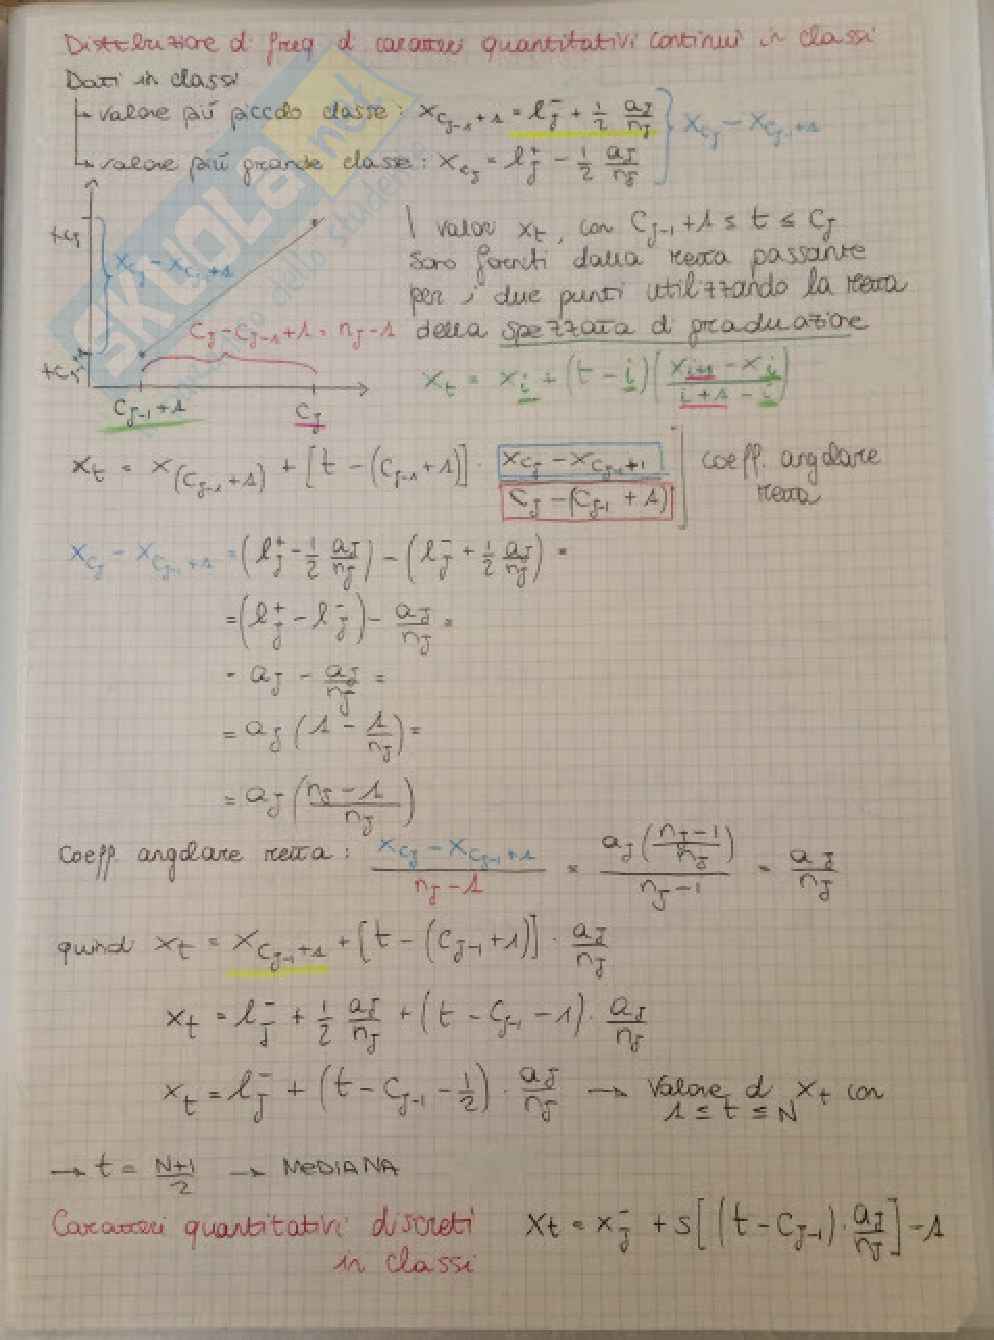 Distribuzione di freq di caratteri quantitativi continui in classi
Dati in classi
↳ valore più piccolo classe: x_{C_{J-1}+1} = l_J^- + 1/2 a_J/n_J } x_{C_J} - x_{C_{J-1}+1}
↳ valore più grande classe: x_{C_J} = l_J^+ - 1/2 a_J/n_J
I valori x_t, con C_{J-1}+1 ≤ t ≤ C_J
sono forniti dalla retta passante
per i due punti utilizzando la retta
della spezzata di graduazione
x_{C_J} - x_{C_{J-1}+1}
C_J - C_{J-1}+1 = n_J - 1
C_{J-1}+1
C_J
x_t = x_i + (t - i) (x_{i+1} - x_i / i+1 - i)
x_t = x_{(C_{J-1}+1)} + [t - (C_{J-1}+1)] · x_{C_J} - x_{C_{J-1}+1} / C_J - (C_{J-1}+1) ] coeff. angolare
retta
x_{C_J} - x_{C_{J-1}+1} = (l_J^+ - 1/2 a_J/n_J) - (l_J^- + 1/2 a_J/n_J) =
= (l_J^+ - l_J^-) - a_J/n_J =
= a_J - a_J/n_J =
= a_J (1 - 1/n_J) =
= a_J (n_J - 1 / n_J)
Coeff. angolare retta: x_{C_J} - x_{C_{J-1}+1} / n_J - 1 = a_J (n_J - 1 / n_J) / n_J - 1 = a_J/n_J
quindi x_t = x_{C_{J-1}+1} + [t - (C_{J-1}+1)] · a_J/n_J
x_t = l_J^- + 1/2 a_J/n_J + (t - C_{J-1} - 1) · a_J/n_J
x_t = l_J^- + (t - C_{J-1} - 1/2) · a_J/n_J → Valore di x_t con
1 ≤ t ≤ N
→ t = N+1/2 → MEDIANA
Caratteri quantitativi discreti
in classi
x_t = x_J^- + s[(t - C_{J-1}) · a_J/n_J] - 1
SKUOLA.net